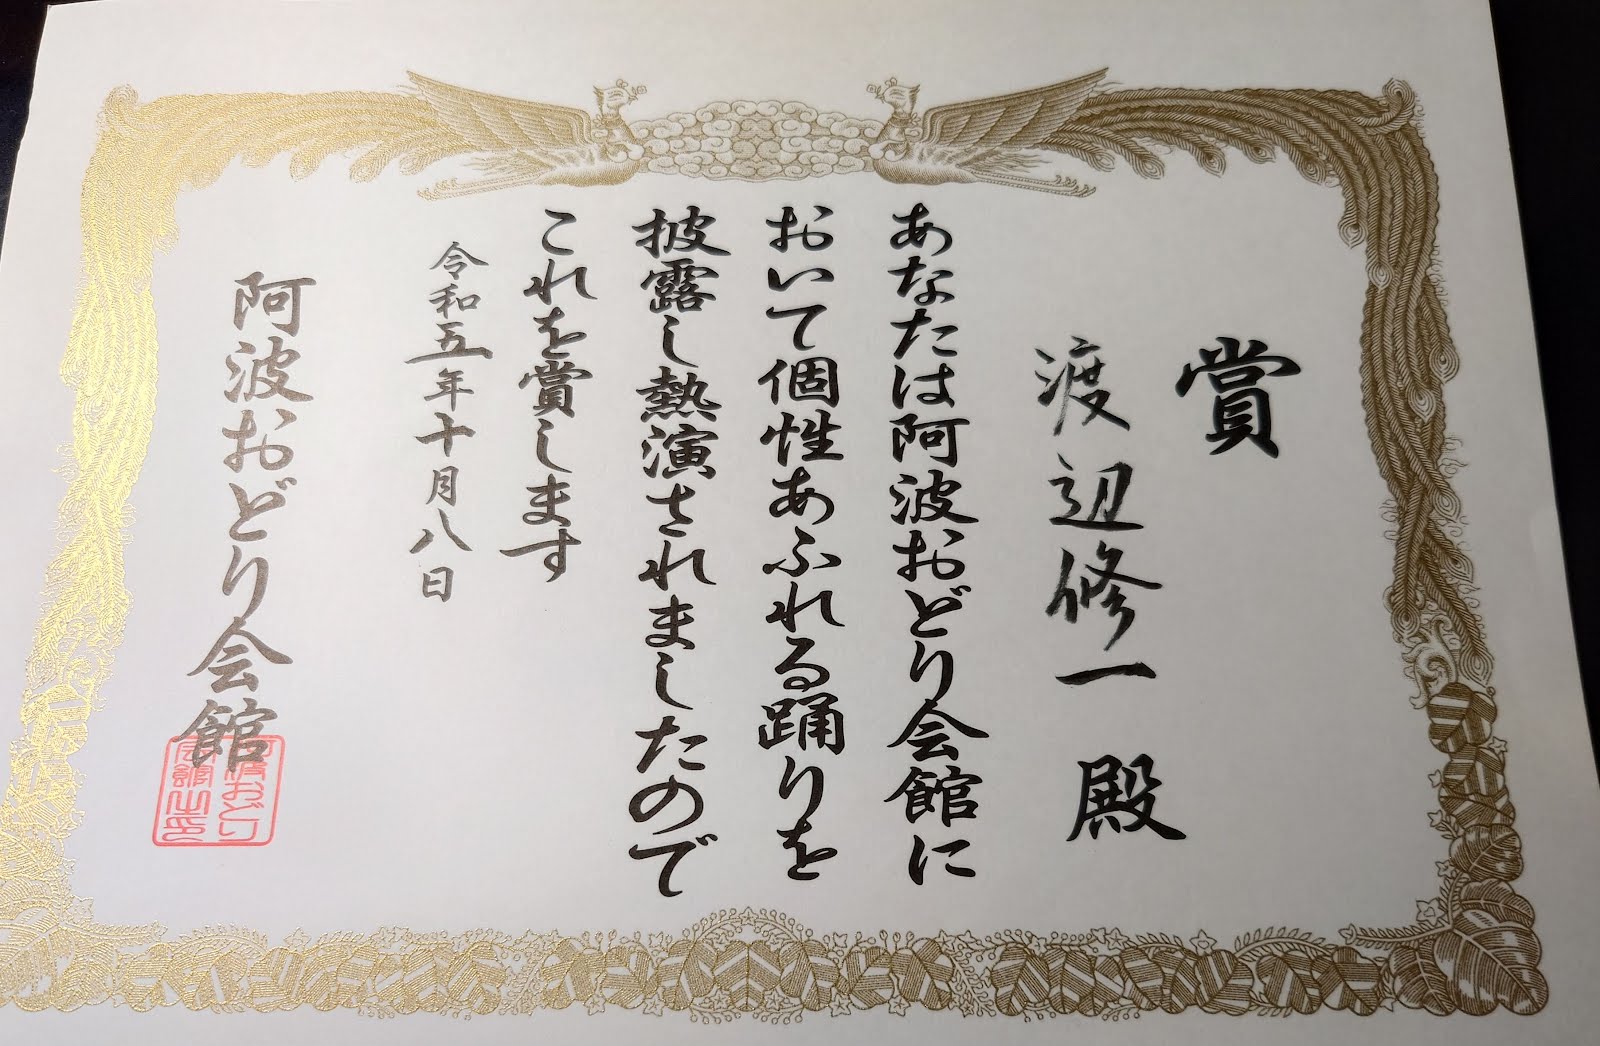 賞
渡辺修一殿
あなたは阿波おどり会館に
おいて個性あふれる踊りを
披露し熱演されましたので
これを賞します
令和五年十月八日
阿波おどり会館
阿波おどり
会館之印